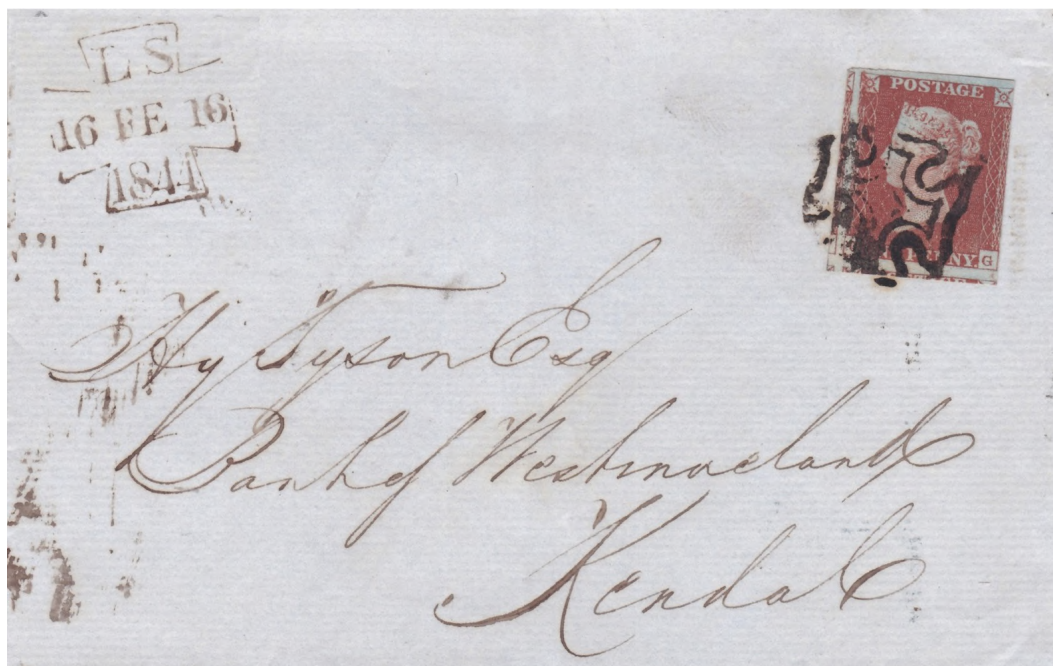 LS
16 FE 16
1844
POSTAGE
NY.
G
Hy Tyson Esq
Bank of Westmoreland
Kendal